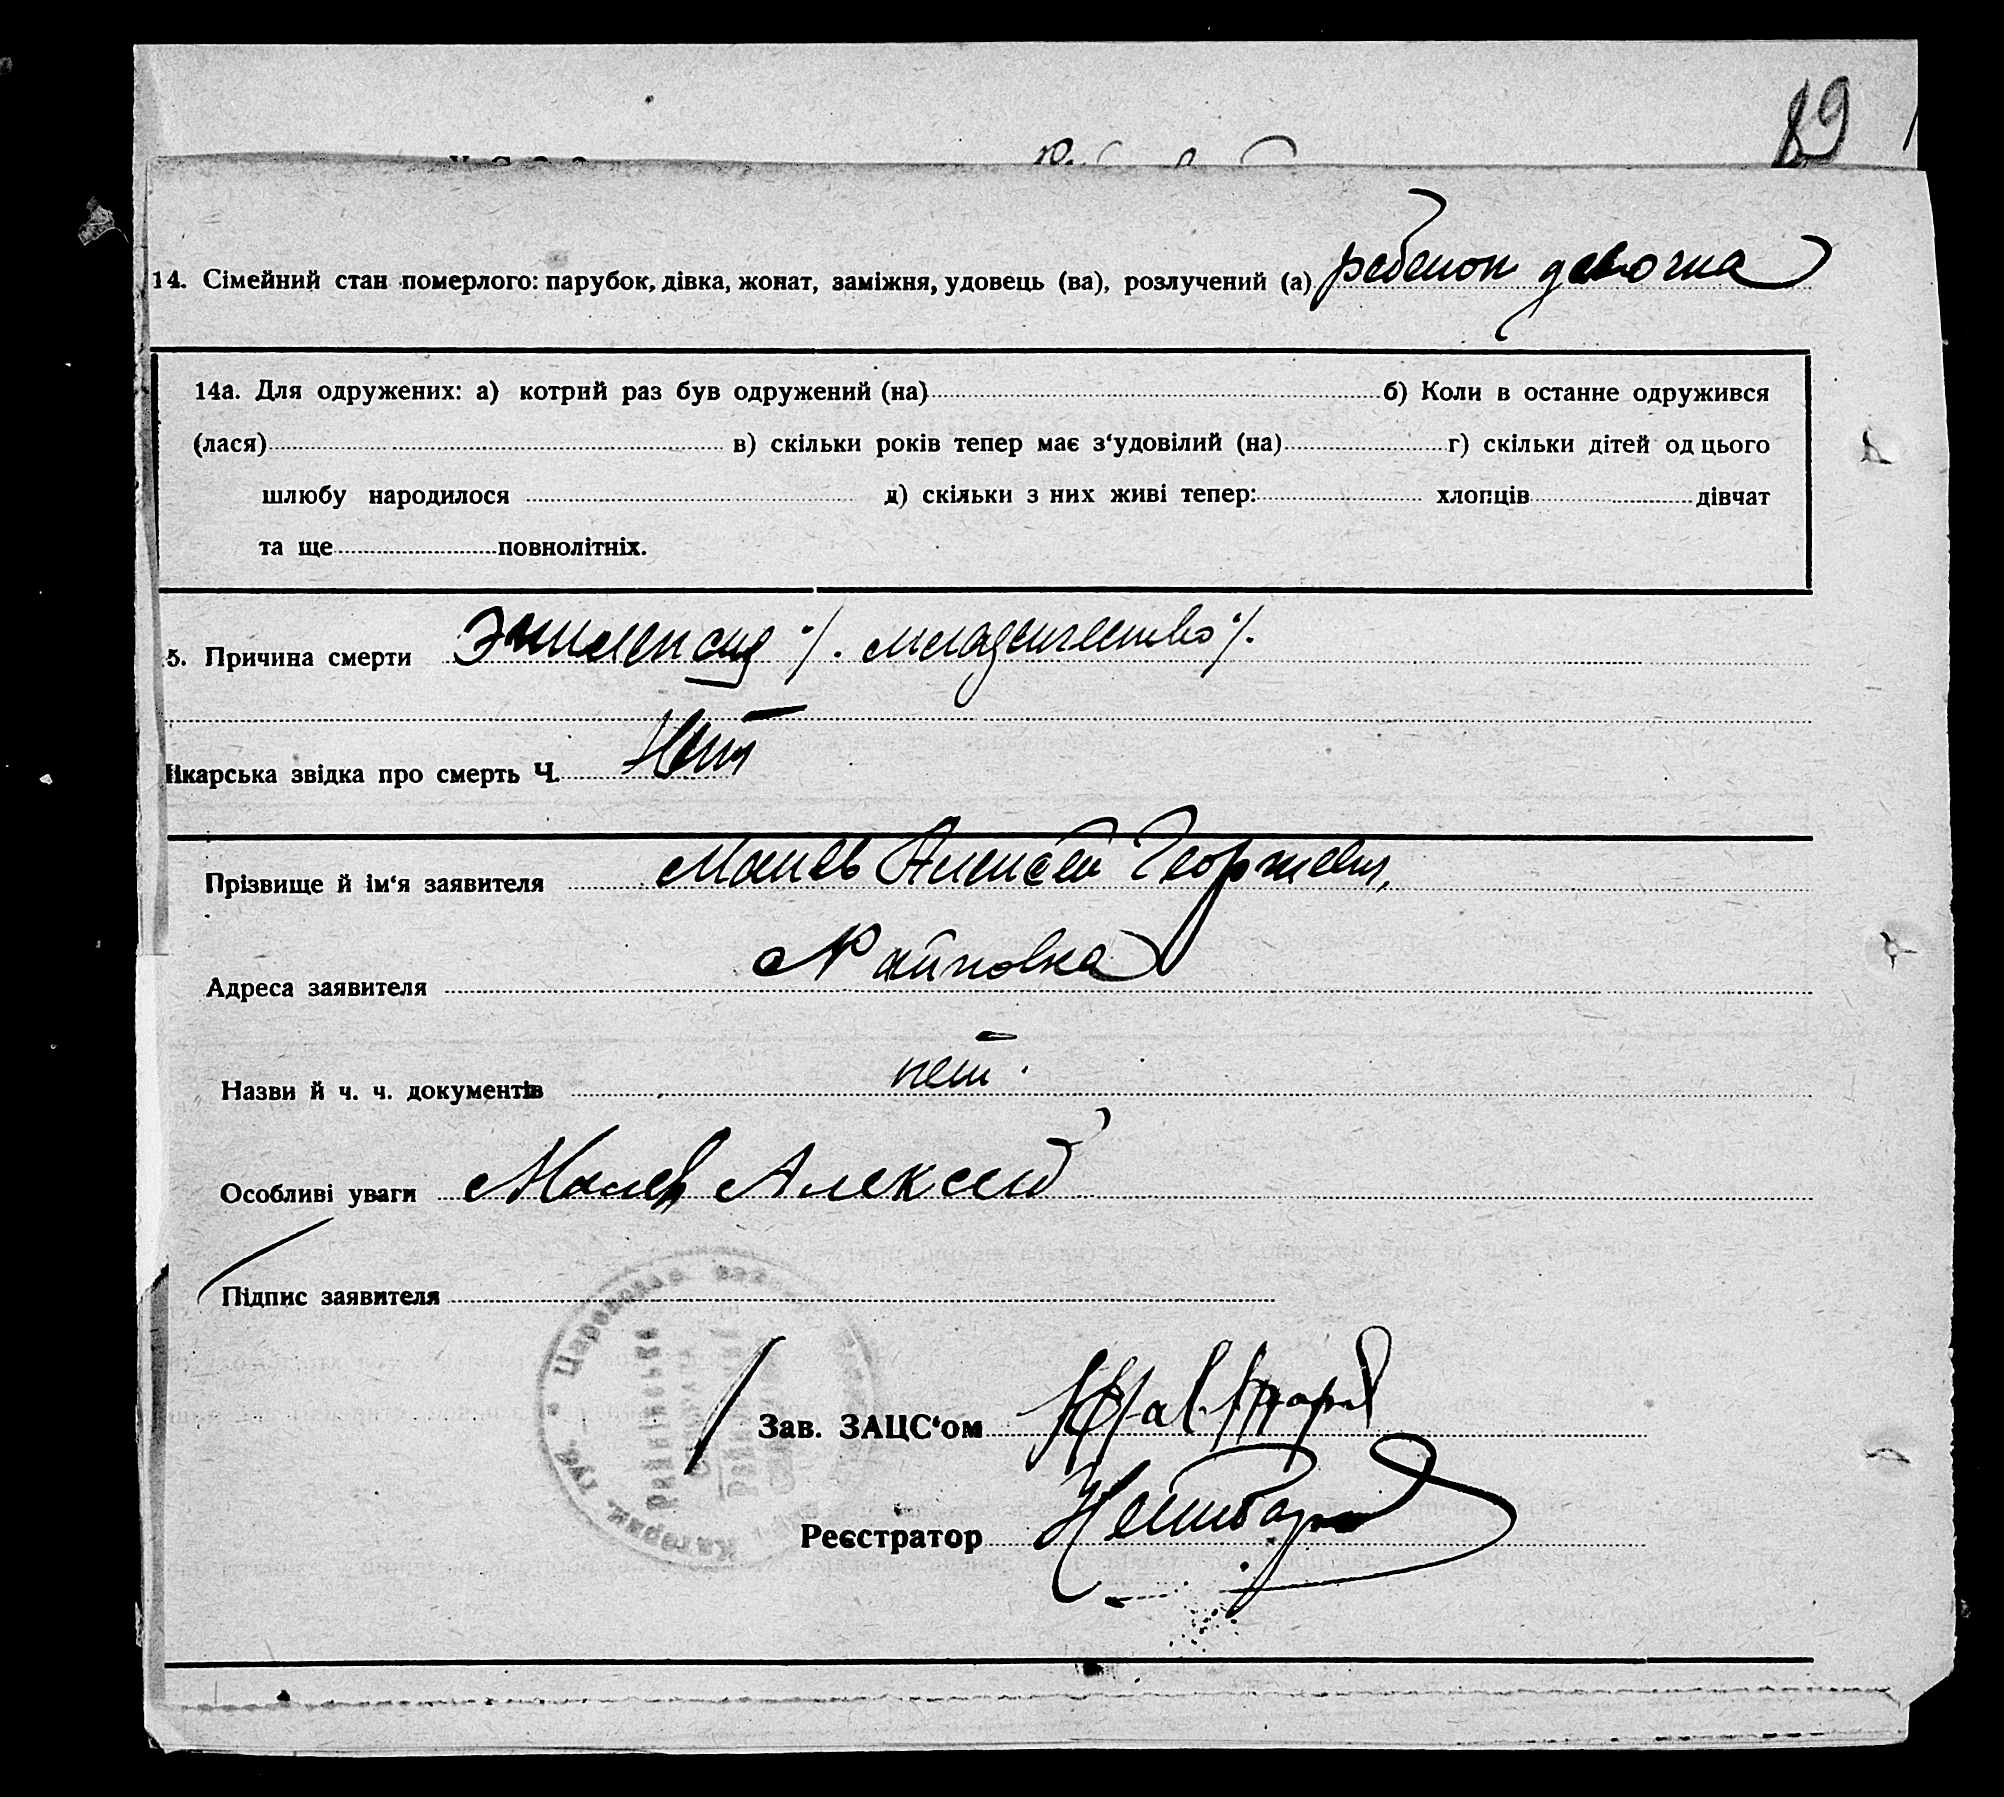 89
14. Сімейний стан померлого: парубок, дівка, жонат, заміжня, удовець (ва), розлучений (а) ребенок девочка
14а. Для одружених: а) котрий раз був одружений (на) б) Коли в останне одружився
(лася) в) скільки років тепер має з‘удовілий (на) г) скільки дітей од цього
шлюбу народилося д) скільки з них живі тепер: хлопців дівчат
та ще повнолітніх.
5. Причина смерти Эпилепсия /. младенчество /.
лікарська звідка про смерть Ч. Нет
Прізвище й ім‘я заявителя Малев Алексей Георгиевич,
Адреса заявителя
Назви й ч. ч. документів нет.
Особливі уваги Малев Алексей
Підпис заявителя
Зав. ЗАЦС‘ом
Реєстратор